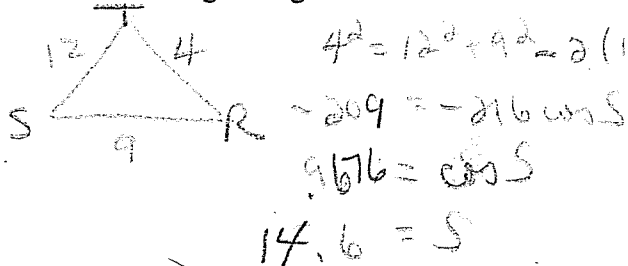 T
12 4
S R
9
4² = 12² + 9² - 2(1
-209 = -216 cos S
.9676 = cos S
14.6 = S